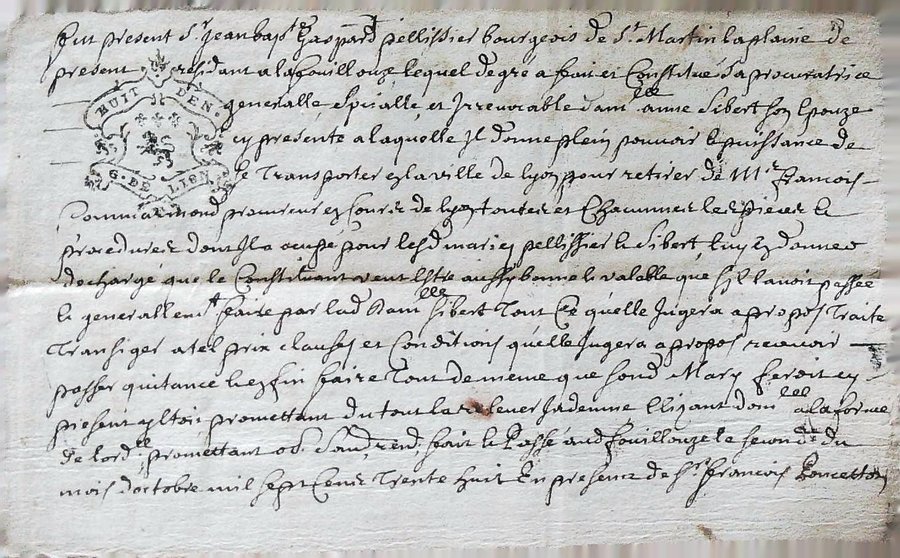 fut present Sr jean bapt gaspard pellissier bourgeois de St Martin la plaine de
present residant a la fouillouze lequel de gré a fait et Constitué sa procuratrice
HUIT DEN.
generalle speciale et Irrevocable dam.lle anne sibert son epouze
cy presente a laquelle Il donne plein pouvoir et puissance de
se Transporter en la ville de lyon pour retirer de Mr francois
G. DE LION
procureur es Cours de lyon toutes et Chacunnes les pieces et
procedures dont Il a pour lesd mariez pellissier et sibert luy en donner
decharge que le Constituant veut estre aussy bonne et valable que sil lavoit passée
et generallemt faire par lad dam.lle sibert Tout Ce quelle Jugera a propos Traite
Transiger a tel prix clauses et Conditions quelle Jugera a propos recevoir
passer quitance et enfin faire Tout de meme que sond Mary feroit sy
present y estoit promettant du tout la relever Indemne Elizant dom.lle a la forme
de lord. promettant ob. fait et Passé aud fouillouze le second du
mois doctobre mil sept Cens Trente huit En presence de Sr francois Poncetton